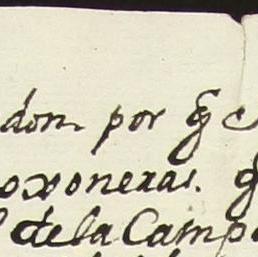 don por q̃
oxoneras. q̃
de la Camp